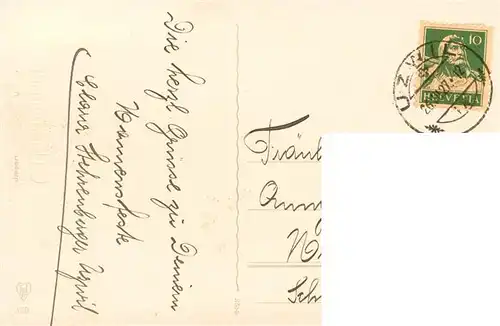 Die herzl Grüsse zu Deinem
Namensfeste
Clara Hohrenburger Uzwil
10
HELVETIA
UZWIL
Fräul
Ann
N
Sch